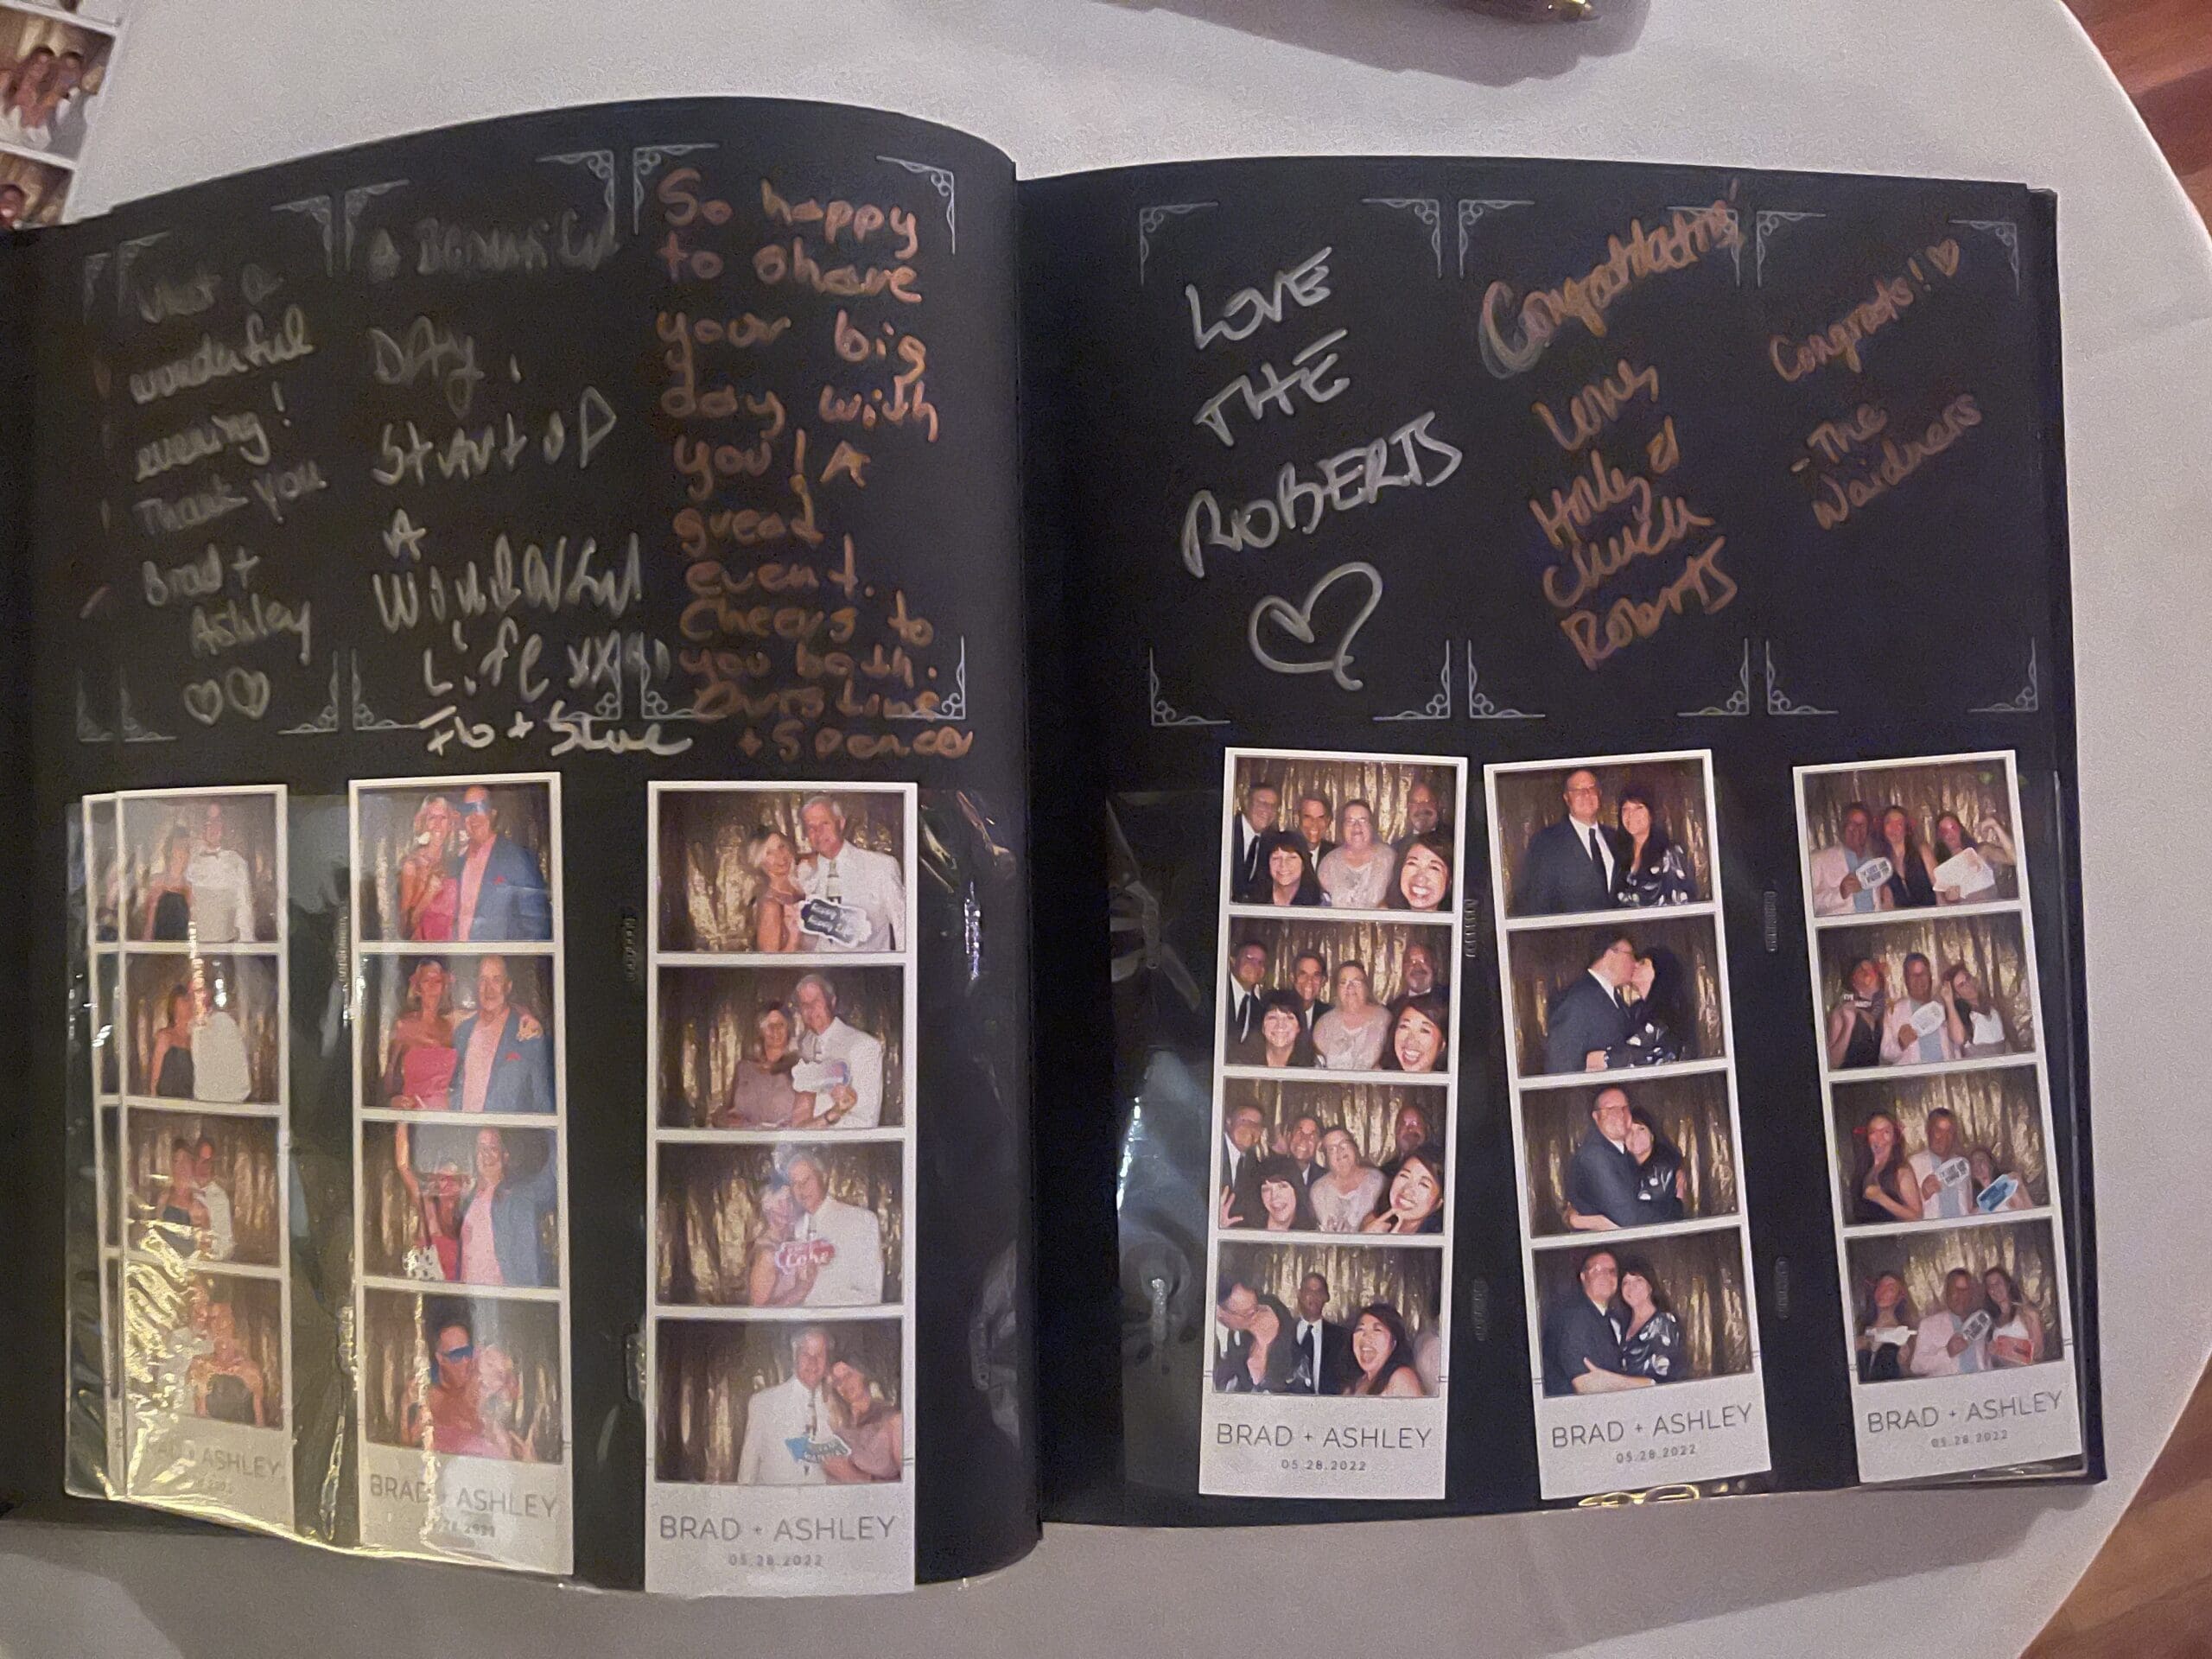 What a
wonderful
evening!
Thank you
Brad +
Ashley
A
DAY.
Start of
A
Wonderful
Life
Flo + Steve
So happy
to share
your big
day with
you! A
great
event.
Cheers to
you both.
LOVE
THE
ROBERTS
Congratulations!
Love,
Holly &
Chuck
Roberts
Congrats!
- The
Waidners
BRAD + ASHLEY
BRAD + ASHLEY
BRAD + ASHLEY
05.28.2022
BRAD + ASHLEY
05.28.2022
BRAD + ASHLEY
05.28.2022
BRAD + ASHLEY
05.28.2022